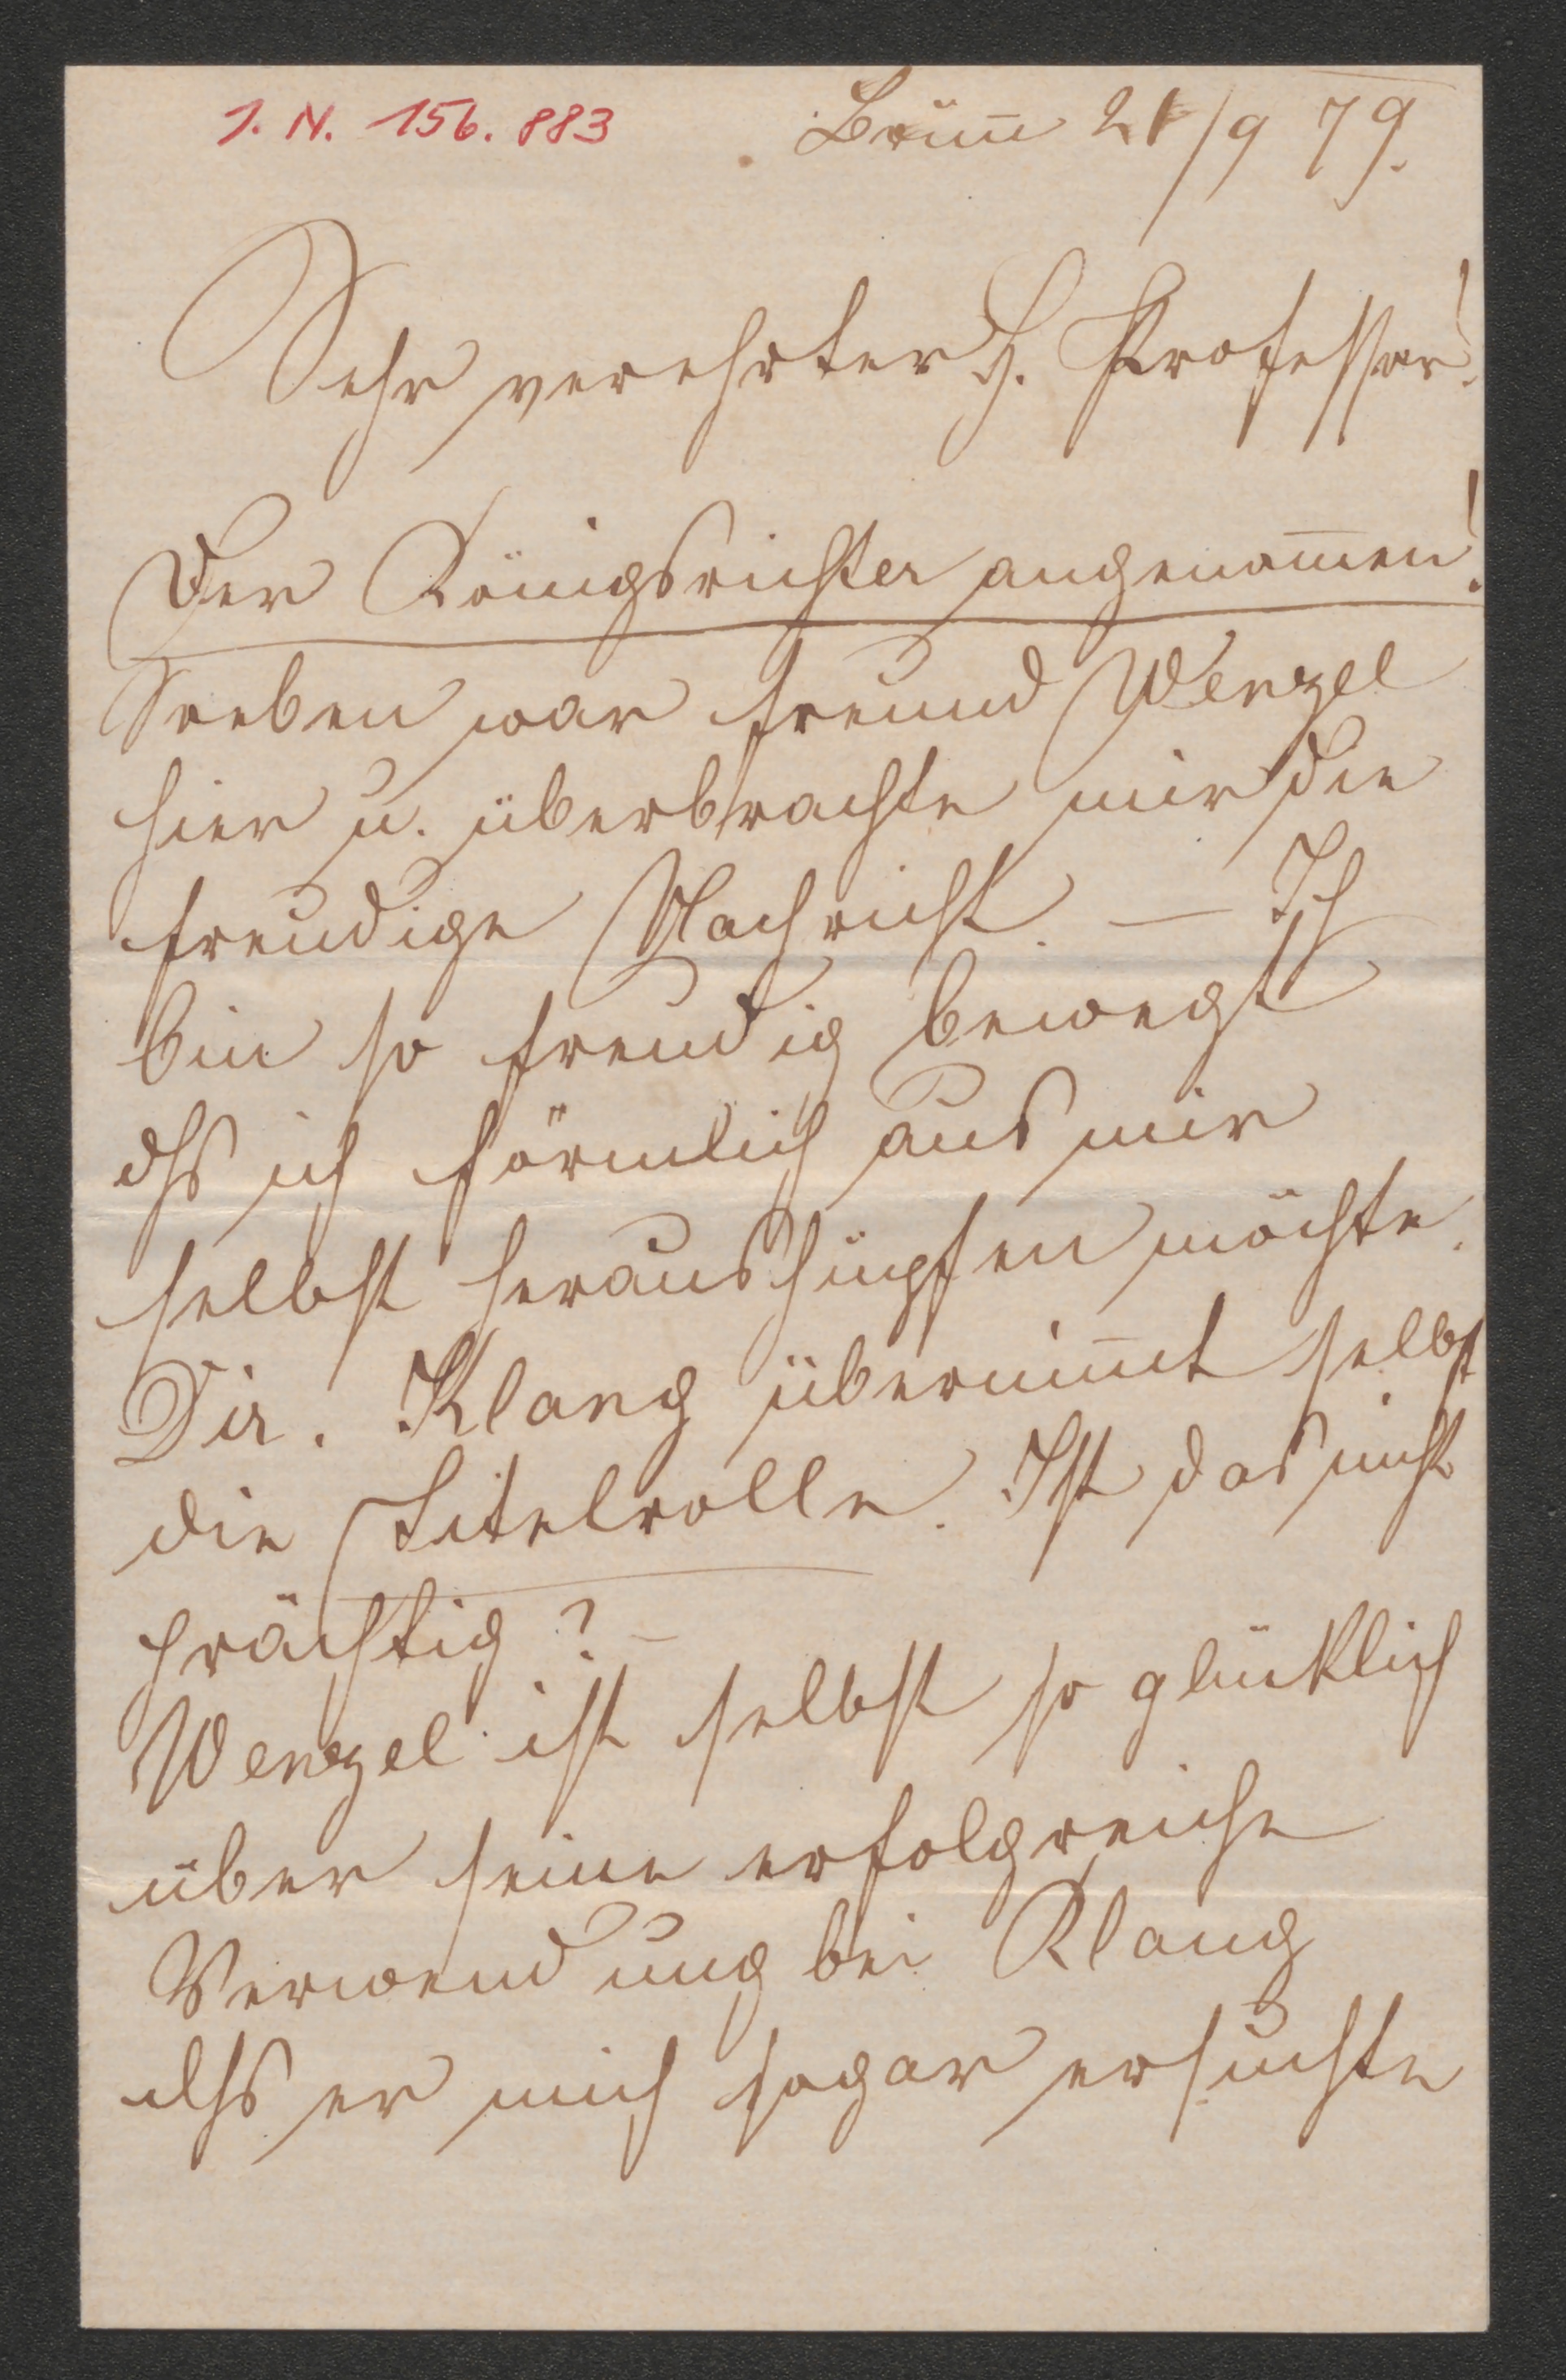 J. N. 156.883
Brün̄ 21/9 79.
Sehr verehrter H. Professor!
Der Königsrichter angenom̄en!
Soeben war Freund Wenzel
hier u. überbrachte mir die
freudige Nachricht. — Ich
bin so freudig bewegt
dß ich förmlich aus mir
selbst heraushüpfen möchte.
Dir. Klang übernim̄t selbst
die Titelrolle. Ist das nicht
prächtig? –
Wenzel ist selbst so glücklich
über seine erfolgreiche
Verwendung bei Klang
dß er mich sogar ersuchte